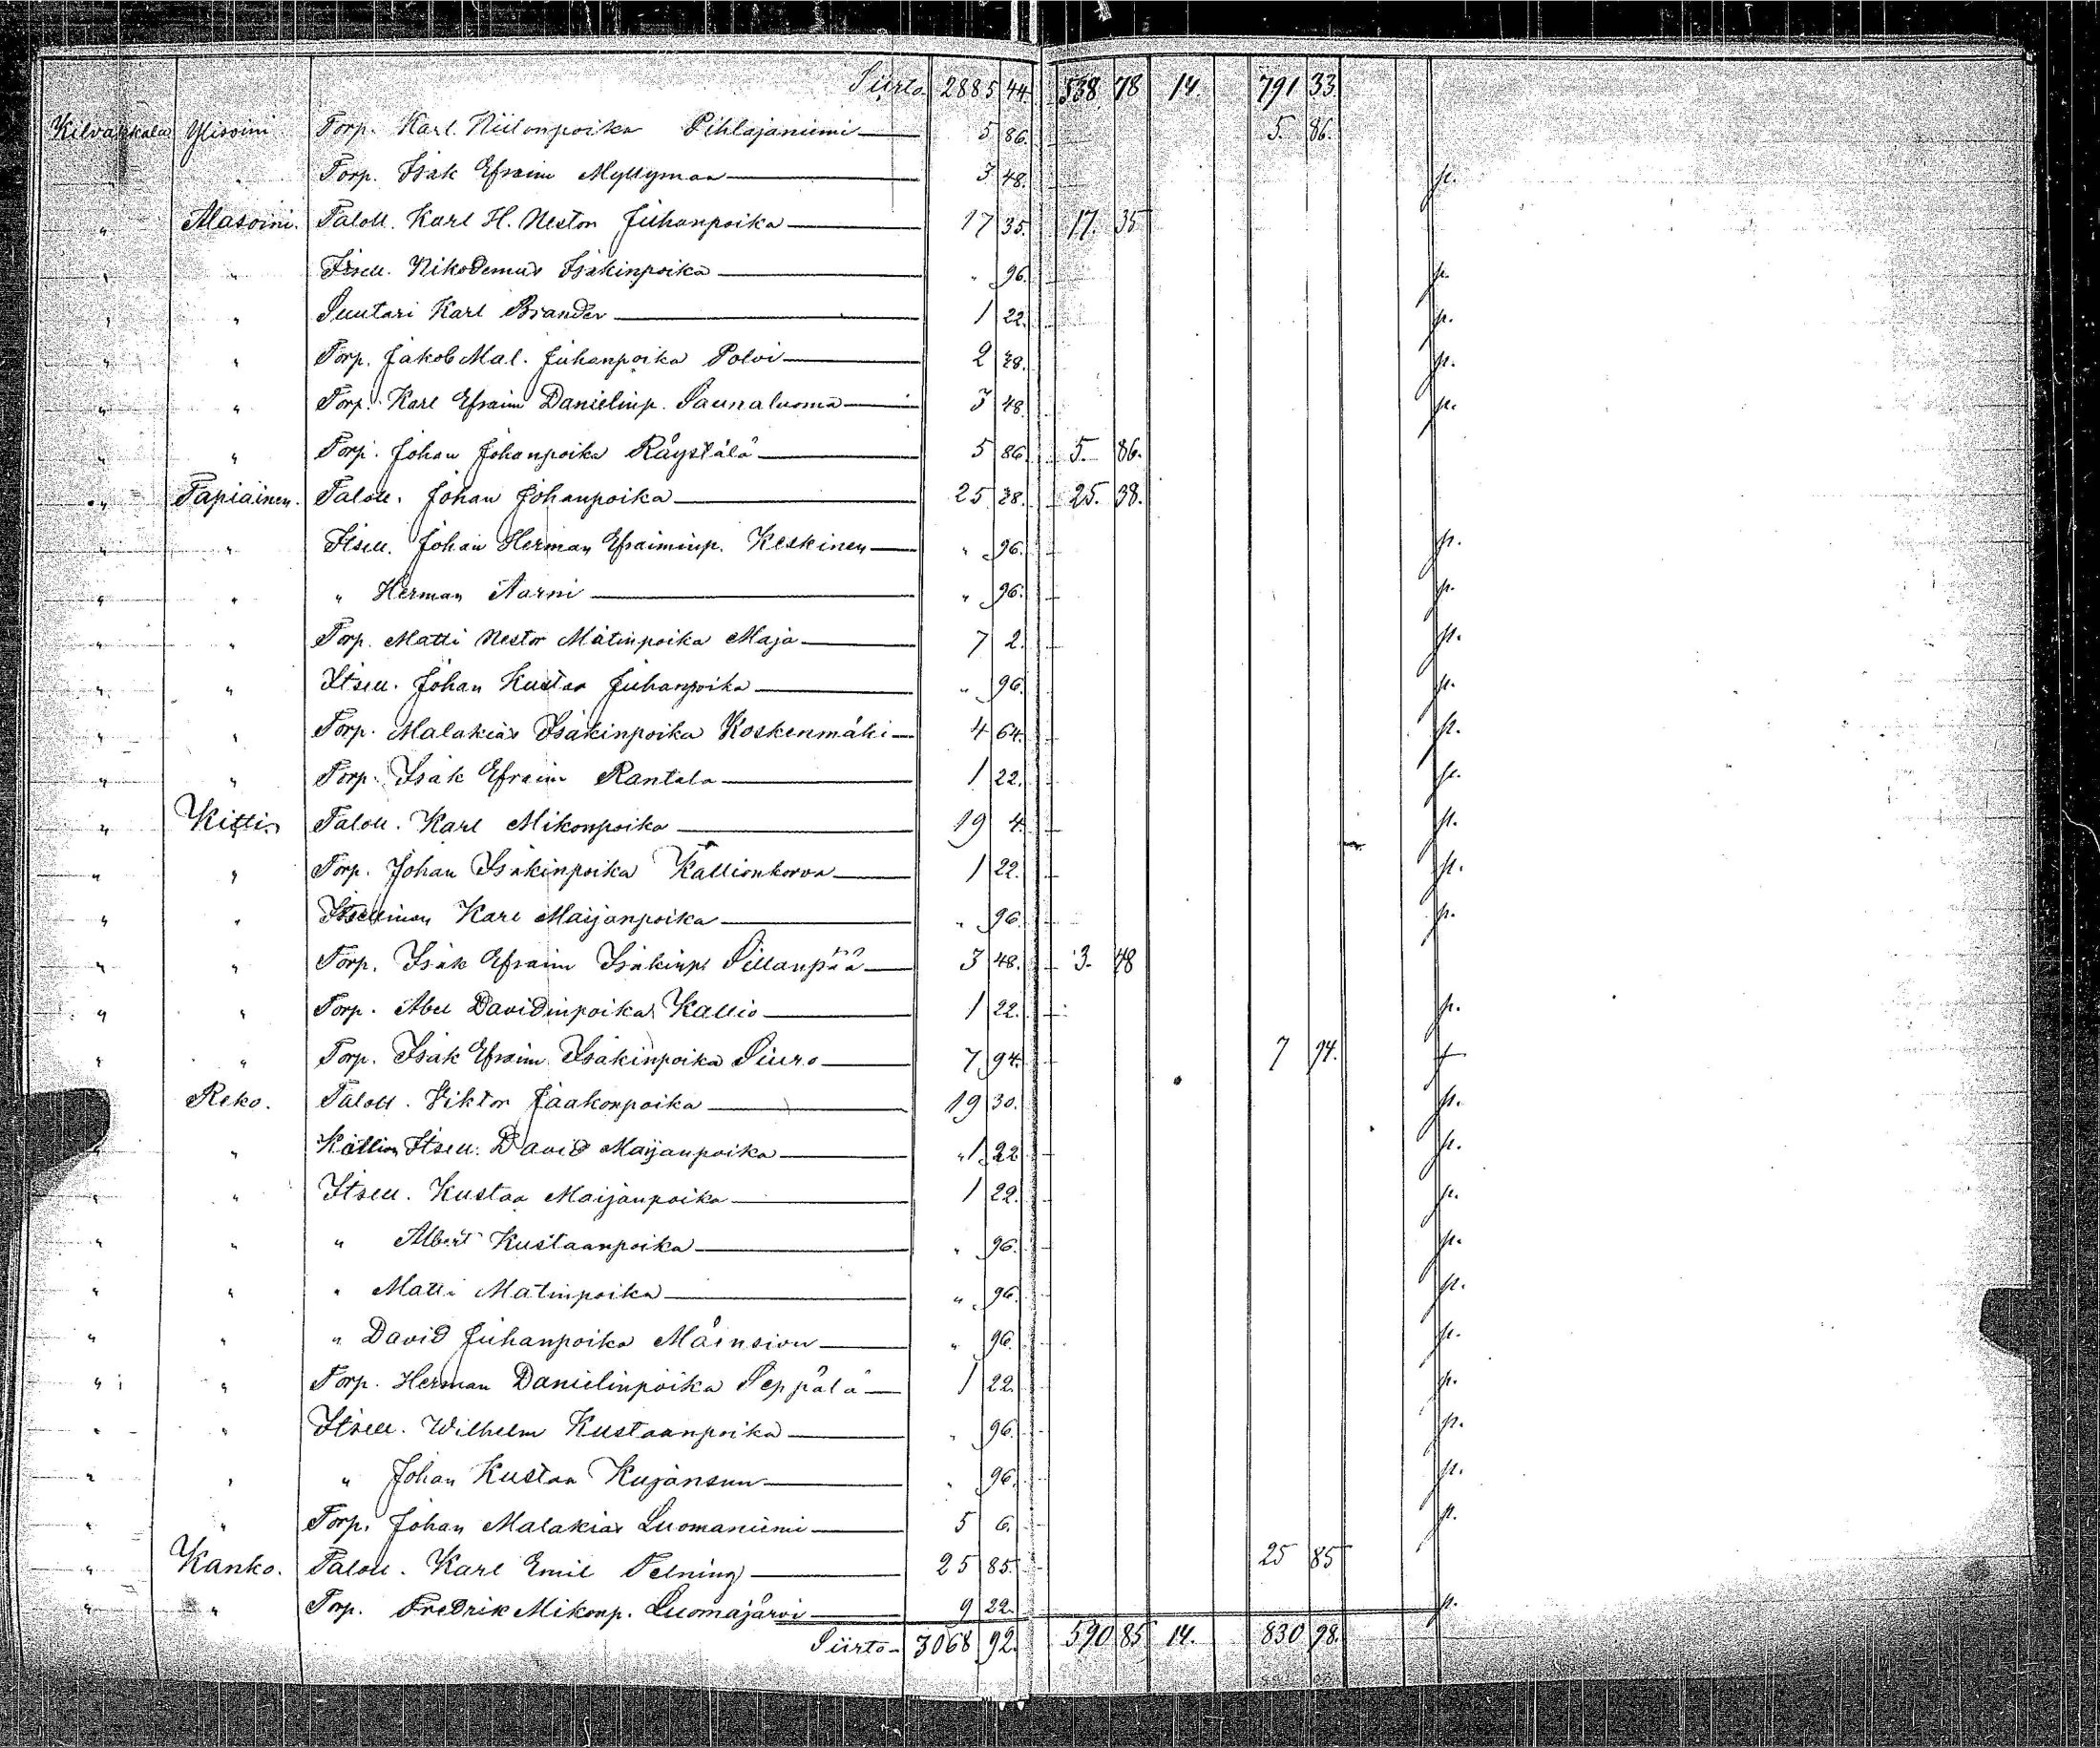 Siirto 2885 44. 538 78 14 791 33
Kilvakkala Ylisoini Torp. Karl Niilonpoika Pihlajaniemi 5 86. 5. 86.
" " Torp. Isak Efraim Myllymaa 3 48. p.
" Alasoini. Taloll. Karl H. Nestor Juhanpoika 17 35. 17. 35
" " Itsell. Nikodemus Isakinpoika " 96. p.
" " Suutari Karl Brander 1 22. p.
" " Torp. Jakob Mal. Juhanpoika Polvi 2 38. p.
" " Torp. Karl Efraim Danielinp. Saunaluoma 3 48. p.
" " Torp. Johan Johanpoika Räystälä 5 86 5. 86.
" Tapiainen. Taloll. Johan Johanpoika 25 38. 25. 38.
" " Itsell. Johan Herman Efraiminp. Keskinen " 96. p.
" " " Herman Aarni " 96. p.
" " Torp. Matti Nestor Matinpoika Maja 7 2. p.
" " Itsell. Johan Kustaa Juhanpoika " 96. p.
" " Torp. Malakias Isakinpoika Koskenmäki 4 64. p.
" " Torp. Isak Efraim Rantala 1 22. p.
" Kitti Taloll. Karl Mikonpoika 19 4. p.
" " Torp. Johan Isakinpoika Kallionkorva 1 22. p.
" " Itsellinen Karl Maijanpoika " 96. p.
" " Torp. Isak Efraim Isakinp. Sillanpää 3 48. 3. 48
" " Torp. Abel Davidinpoika Kallio 1 22. p.
" " Torp. Isak Efraim Isakinpoika Siuro 7 94. 7 94.
Reko. Taloll. Viktor Jaakonpoika 19 30. p.
" " Itsell. David Maijanpoika " 1 22 p.
" " Itsell. Kustaa Maijanpoika 1 22. p.
" " " Albert Kustaanpoika " 96. p.
" " " Matti Matinpoika " 96. p.
" " " David Juhanpoika Mansion " 96. p.
" " Torp. Herman Danielinpoika Seppälä 1 22. p.
" " Itsell. Wilhelm Kustaanpoika " 96. p.
" " " Johan Kustaa Kujansuu " 96. p.
" " Torp. Johan Malakias Luomaniemi 5 6. p.
" Kanko. Taloll. Karl Emil Telning 25 85. 25 85
" " Torp. Fredrik Mikonp. Luomajärvi 9 22. p.
Siirto 3068 92. 590 85 14. 830 98.